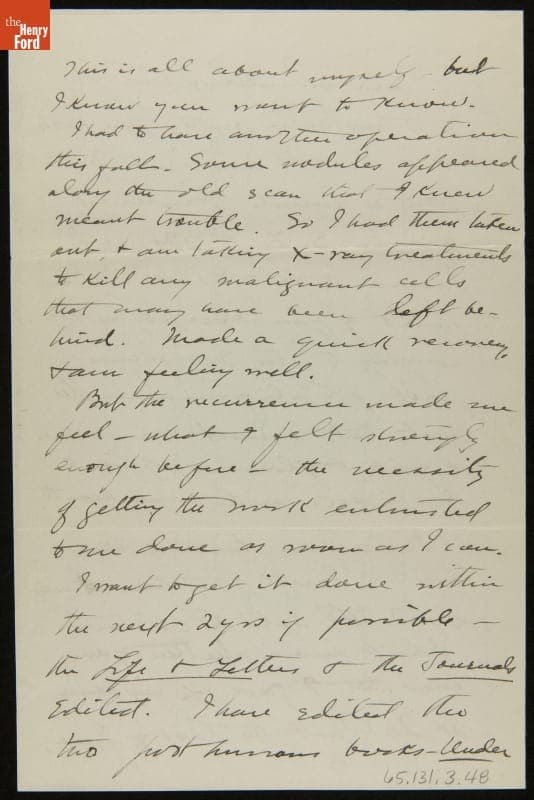 the
Henry
Ford
This is all about myself - but
I know you want to know.
I had to have another operation
this fall. Some nodules appeared
along the old scar that I knew
meant trouble. So I had them taken
out, & am taking X-ray treatments
to kill any malignant cells
that may have been left be-
hind. Made a quick recovery,
& am feeling well.
But the recurrence made me
feel - what I felt strongly
enough before - the necessity
of getting the work entrusted
to me done as soon as I can.
I want to get it done within
the next 2 yrs if possible -
the Life & Letters & the Journals
edited. I have edited the
two posthumous books - Under
65.131.3.48